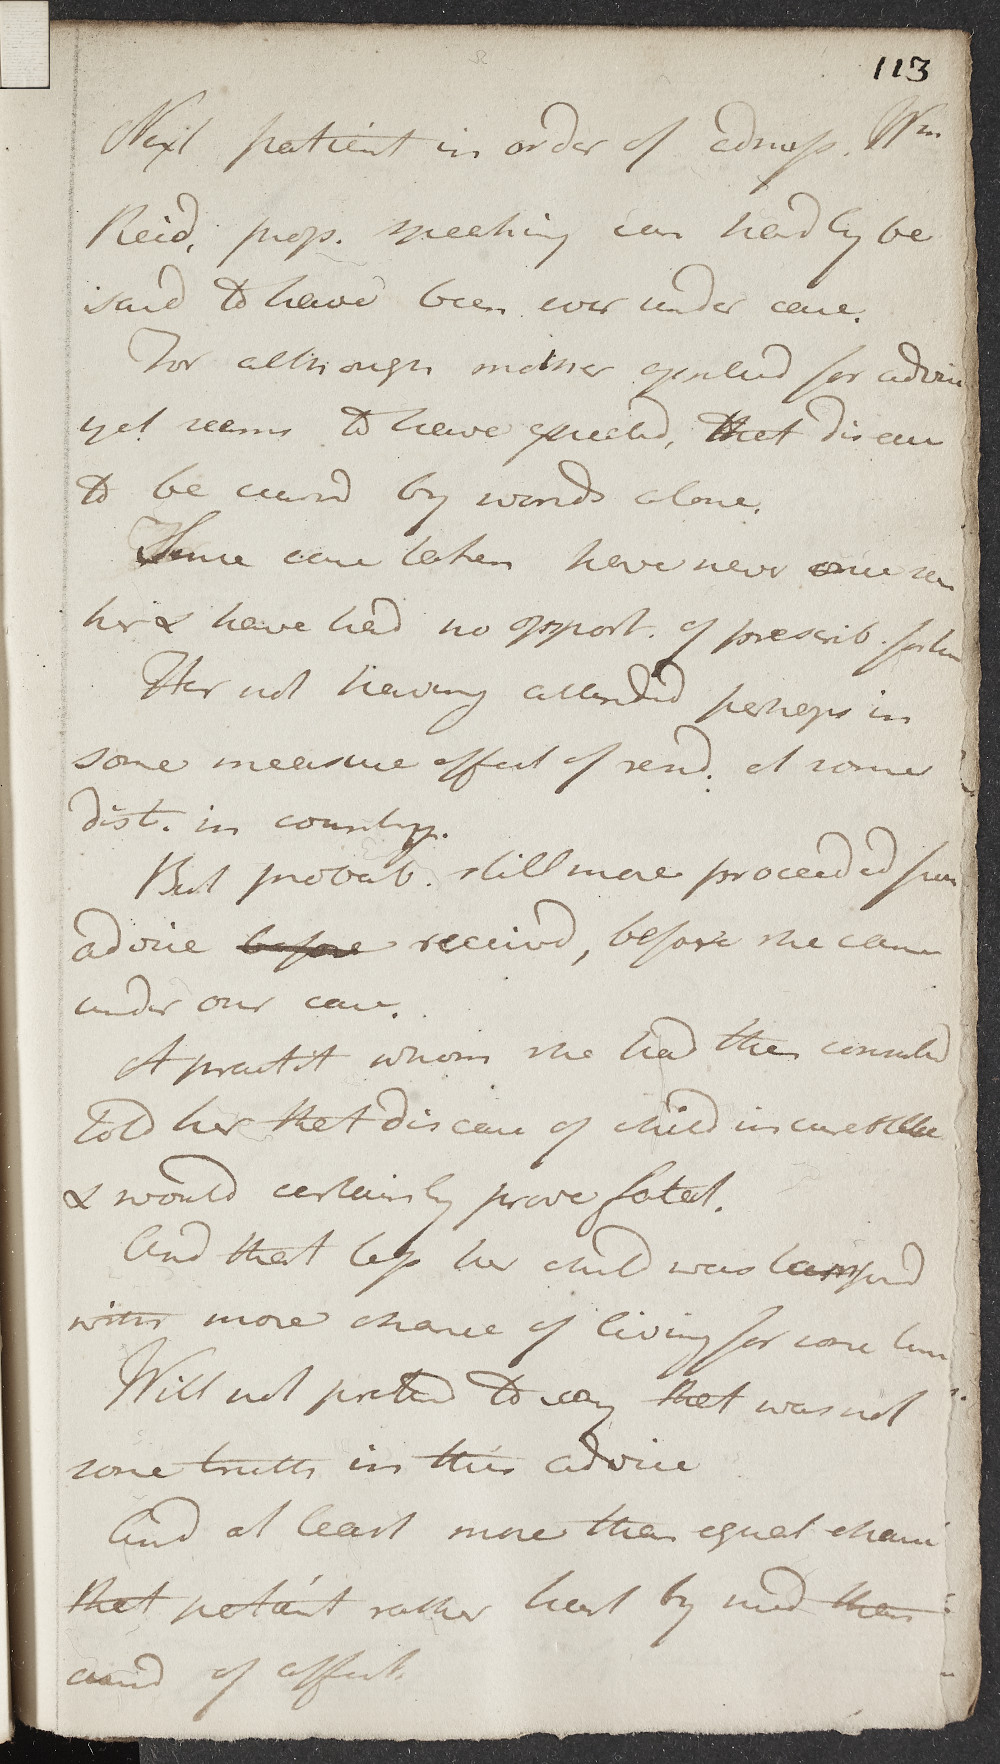 113
Next patient in order of admiss. Wm
Reid, prop. speeking can hardly be
said to have been ever under care.
For although mother applied for advice
yet seems to have expected, that disease
to be cured by words alone.
Since case taken have never once seen
her & have had no opport. of prescrib. for him
Her not having attended perhaps in
some measure effect of resid. at some
dist. in country.
But probab. still more proceeded from
advice before received, before she came
under our care.
A practit whom she had then consulted
told her that disease of child incureable
& would certainly prove fatal.
And that less her child was
with more chance of living for some time
Will not pretend to say that was not
some truth in this advice
And at least more than equal chance
that patient rather hurt by med than
cured of affect.